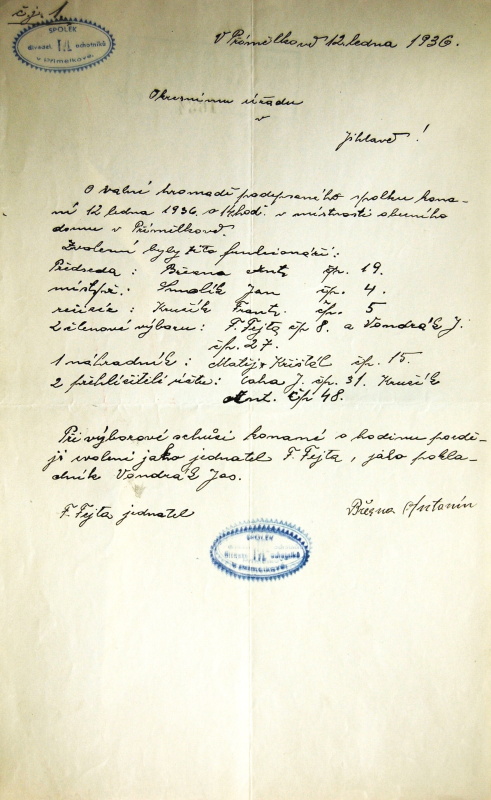 čj. 1
SPOLEK
divadel. TYL ochotníků
v PŘÍMĚLKOVĚ.
V Přímělkově 12. ledna 1936.
Okresnímu úřadu
v
Jihlavě!
O valné hromadě podepsaného spolku kona-
né 12 ledna 1936 o 14 hod. v místnosti obecního
domu v Přímělkově.
Zvoleni byli tito funkcionáři:
Předseda: Března Ant. čp. 19.
místpř.: Smolík Jan čp. 4.
režisér: Kružík Frant. čp. 5
2 členové výboru: F. Fejta čp 8. a Vondrák J.
čp. 27.
1 náhradník: Matěj Křištál čp. 15.
2 přehlížitelé účtu: Coha J. čp. 31. Kružík
Ant. čp 48.
Při výborové schůzi konané o hodinu pozdě-
ji zvoleni jako jednatel F. Fejta, jako pokla-
dník Vondrák Jos.
F. Fejta jednatel
Března Antonín
SPOLEK
divadel. TYL ochotníků
v PŘÍMĚLKOVĚ.